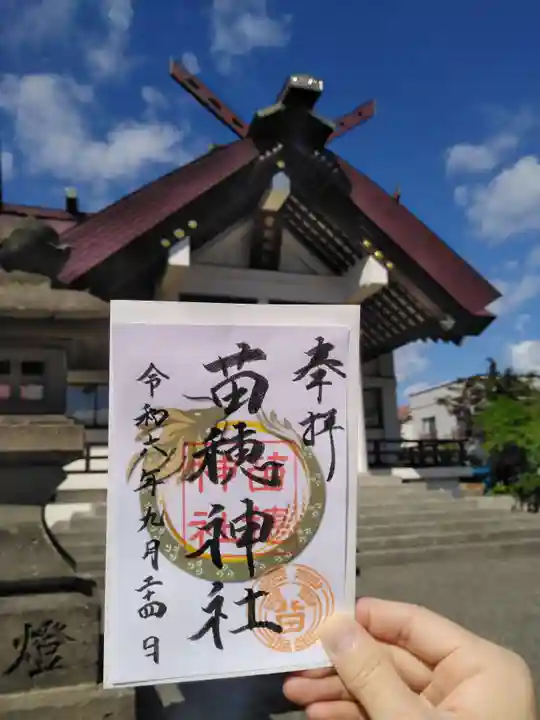 奉拝
苗穂神社
令和六年九月二十四日
苗穂
神社
燈